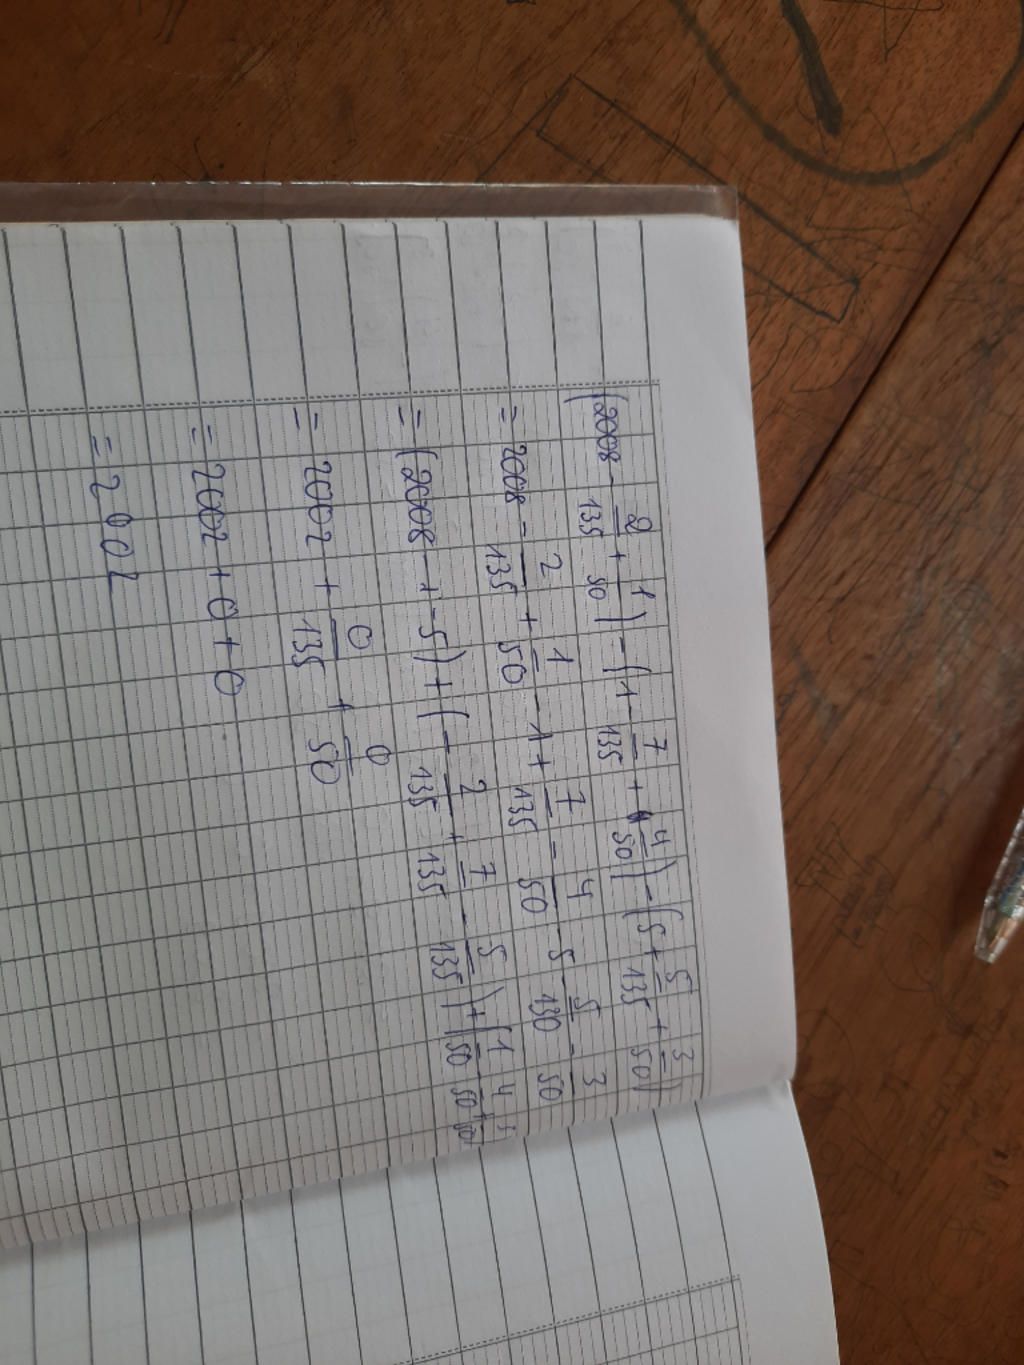 (2008 - 2/135 + 1/50) - (1 - 7/135 + 4/50) - (5 + 5/135 + 3/50)
= 2008 - 2/135 + 1/50 - 1 + 7/135 - 4/50 - 5 - 5/130 - 3/50
= (2008 - 1 - 5) + (- 2/135 + 7/135 - 5/135) + (1/50 4/50
= 2002 + 0/135 + 0/50
= 2002 + 0 + 0
= 2002